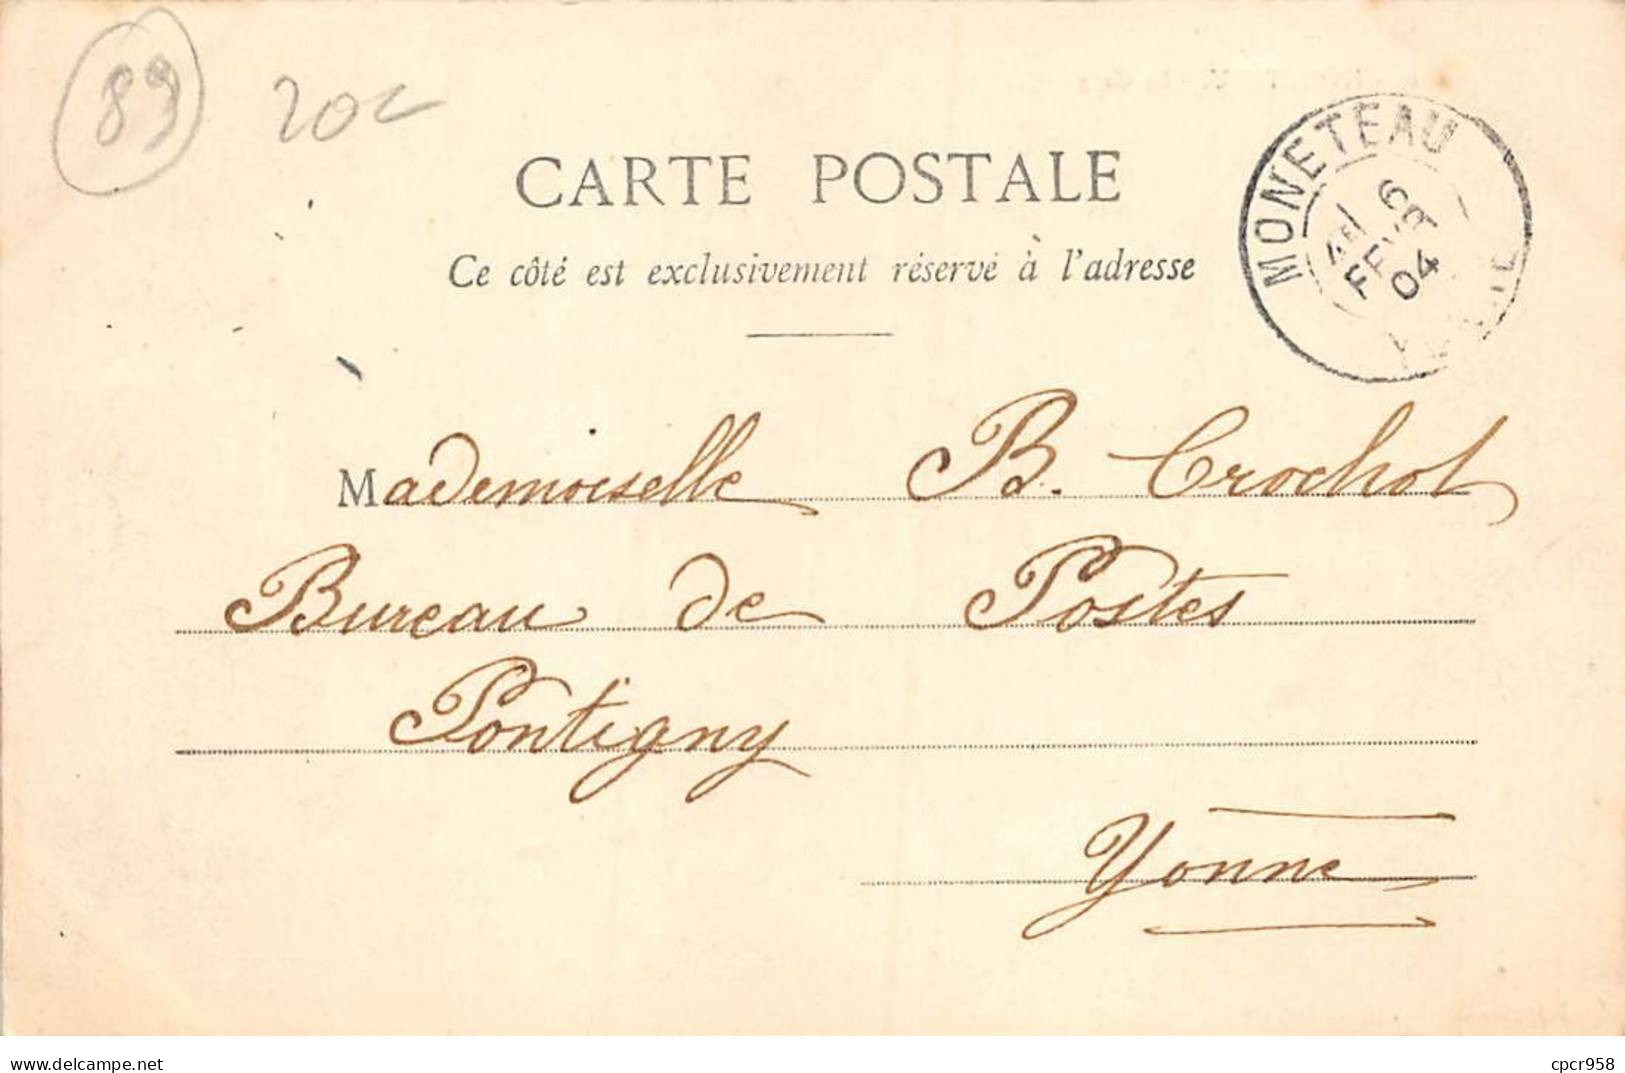 89 20c
CARTE POSTALE
Ce côté est exclusivement réservé à l'adresse
MONETEAU
6
FEVR
04
Mademoiselle B. Crochot
Bureau de Postes
Pontigny
Yonne
delcampe.net
cpcr958